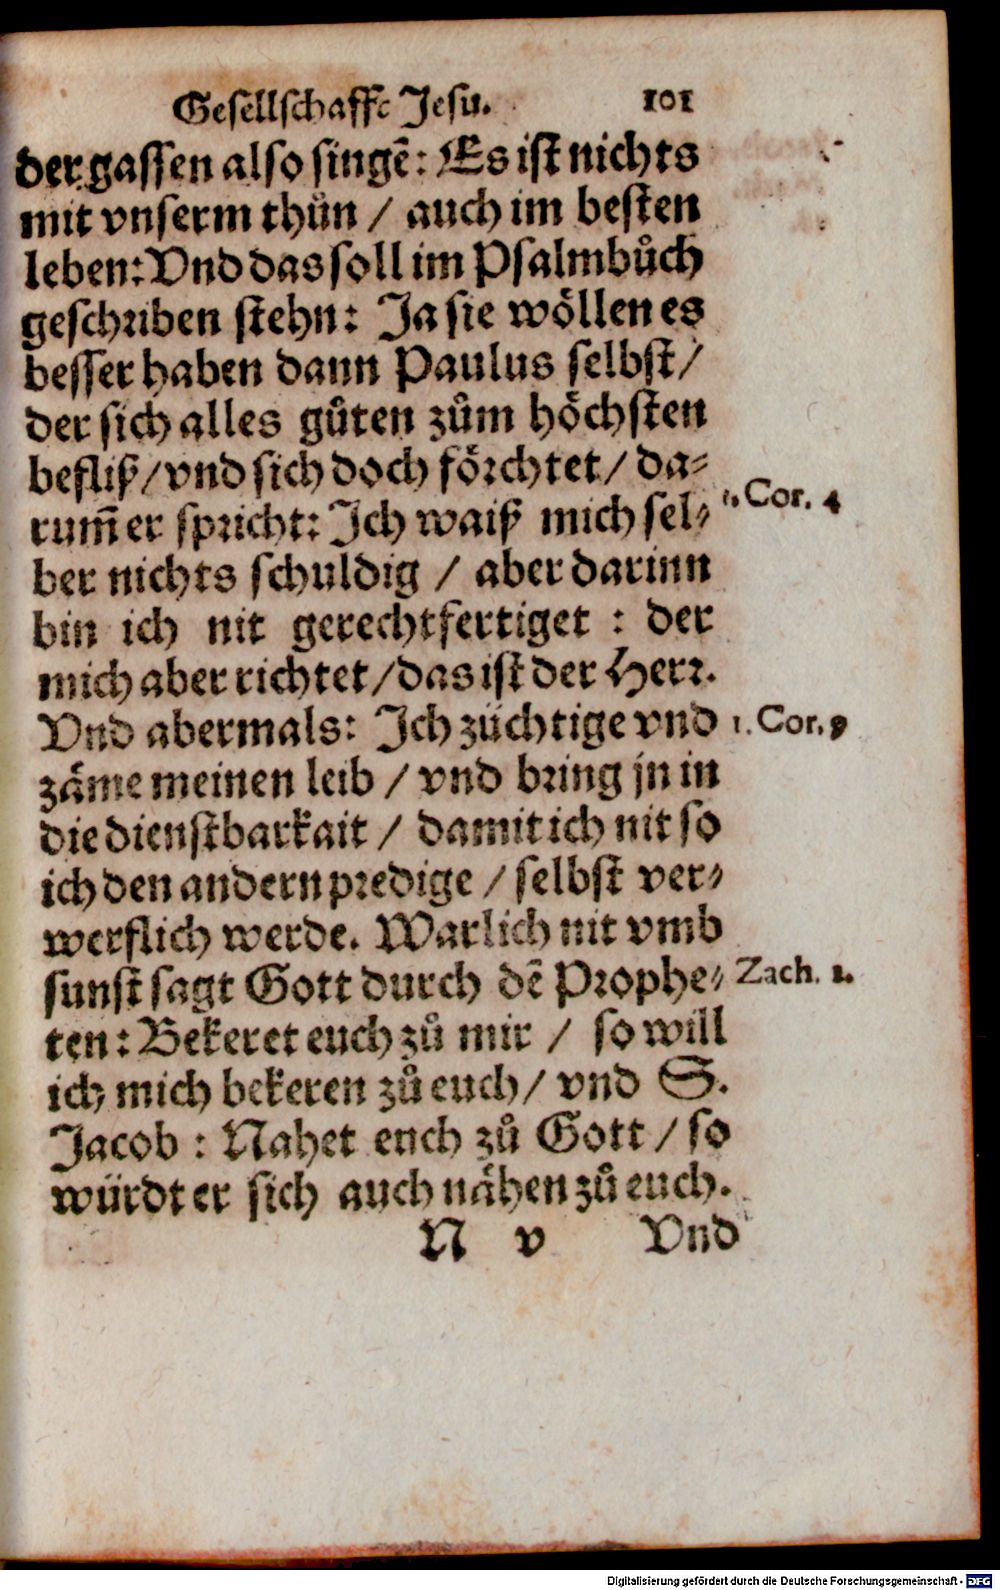 Gesellschafft Jesu. 101
der gassen also singẽ: Es ist nichts
mit vnserm thůn / auch im besten
leben: Vnd das soll im Psalmbůch
geschriben stehn: Ja sie wöllen es
besser haben dann Paulus selbst /
der sich alles gůten zům höchsten
befliß / vnd sich doch förchtet / da⸗
rum̃ er spricht: Ich waiß mich sel⸗ 1. Cor. 4
ber nichts schuldig / aber darinn
bin ich nit gerechtfertiget : der
mich aber richtet / das ist der Herr.
Vnd abermals: Ich züchtige vnd 1. Cor. 9
zäme meinen leib / vnd bring jn in
die dienstbarkait / damit ich nit so
ich den andern predige / selbst ver⸗
werflich werde. Warlich nit vmb
sunst sagt Gott durch dẽ Prophe⸗ Zach. 1.
ten: Bekeret euch zů mir / so will
ich mich bekeren zů euch / vnd S.
Jacob : Nahet euch zů Gott / so
würdt er sich auch nähen zů euch.
N v Vnd
Digitalisierung gefördert durch die Deutsche Forschungsgemeinschaft - DFG